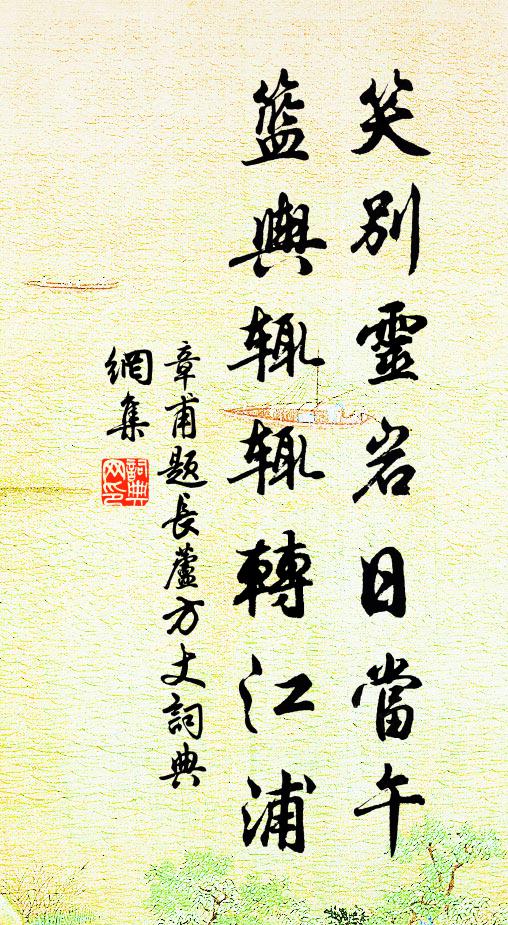 笑别靈岩日當午
籃輿辄辄轉江浦
章甫题長蘆方丈詞典
網集
詞典
网印